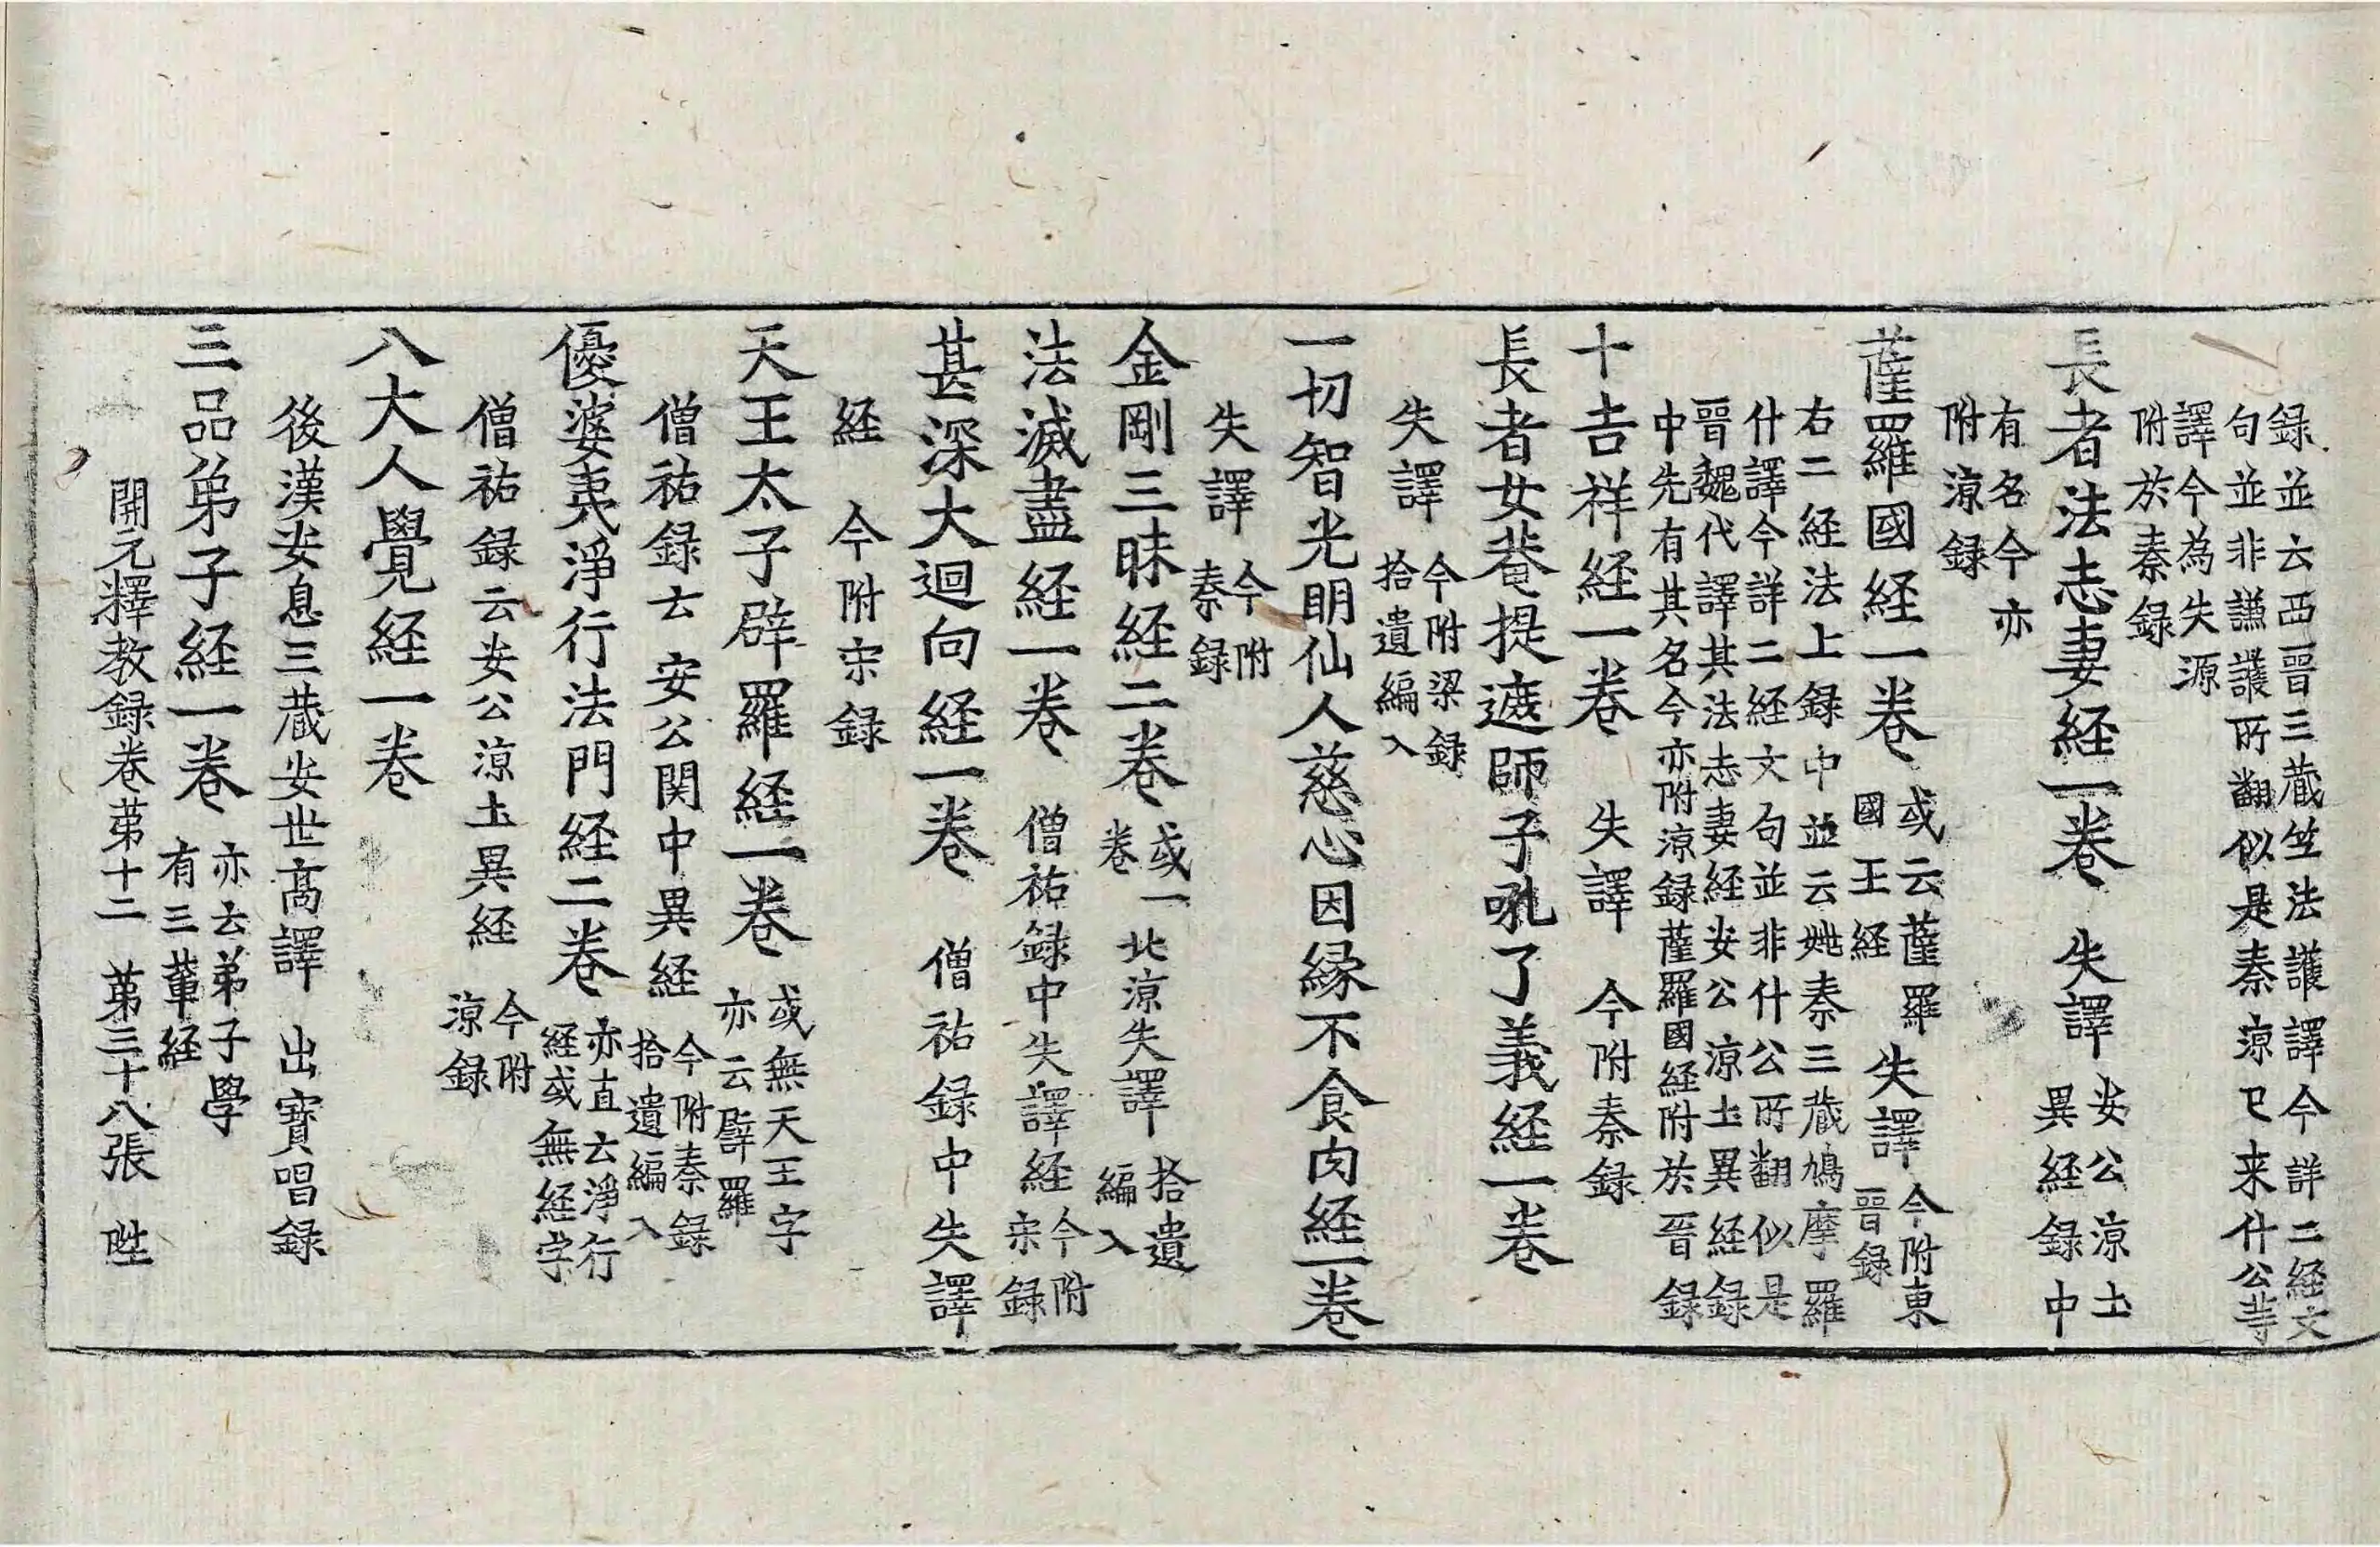 録並云西晉三蔵竺法護譯今詳二経文
句並非讌護所翻似是秦涼已来什公等
譯今為失源
附於秦録
長者法志妻経一巻 失譯 安公涼土
異経録中
有名今亦
附涼録
薩羅國経一巻 或云薩羅
國王経 失譯 今附東
晉録
右二経法上録中並云姚秦三蔵鳩摩羅
什譯今詳二経文句並非什公所翻似是
晉魏代譯其法志妻経安公涼土異経録
中先有其名今亦附涼録薩羅國経附於晉録
十吉祥経一巻 失譯 今附秦録
長者女菴提遮師子吼了義経一巻
失譯 今附梁録
拾遺編入
一切智光明仙人慈心因縁不食肉経一巻
失譯 今附
秦録
金剛三昧経二巻 或一
巻 北涼失譯 拾遺
編入
法滅盡経一巻 僧祐録中失譯経 今附
宋録
甚深大迴向経一巻 僧祐録中失譯
経 今附宋録
天王太子辟羅経一巻 或無天王字
亦云辟羅
僧祐録云安公関中異経 今附秦録
拾遺編入
優婆夷淨行法門経二巻 亦直云淨行
経或無経字
僧祐録云安公涼土異経 今附
涼録
八大人覺経一巻
後漢安息三蔵安世髙譯 出寶唱録
三品弟子経一巻 亦云弟子學
有三輩経
開元釋教録巻苐十二 苐三十八張 甡